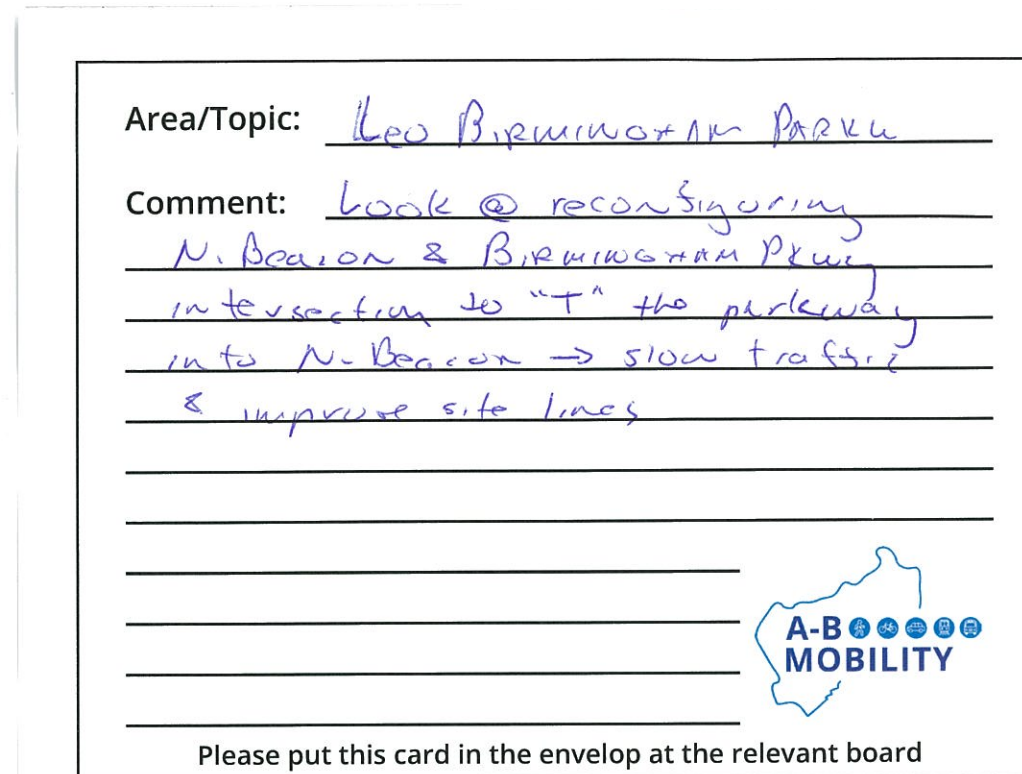 Area/Topic: Leo Birmingham Parkw
Comment: Look @ reconfiguring
N. Beacon & Birmingham Pkwy
intersection to "T" the parkway
into N. Beacon → slow traffic
& improve site lines
A-B
MOBILITY
Please put this card in the envelop at the relevant board